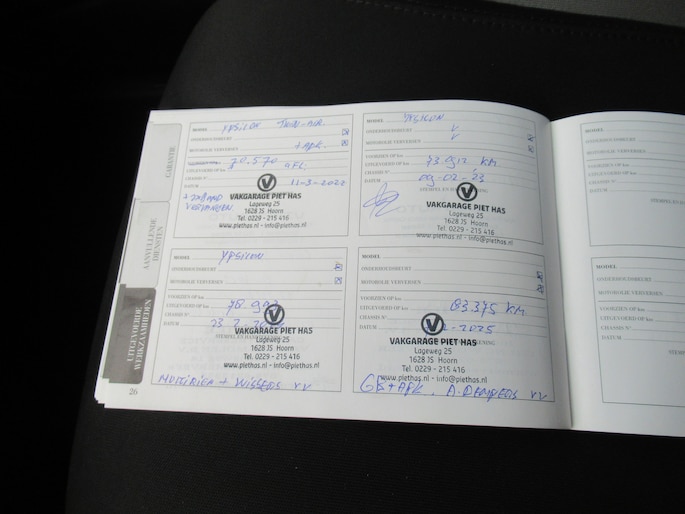 GARANTIE
AANVULLENDE
DIENSTEN
UITGEVOERDE
WERKZAAMHEDEN
MODEL YPSILON TWIN-AIR
ONDERHOUDSBEURT
MOTOROLIE VERVERSEN + APK
70.570
UITGEVOERD OP km
CHASSIS N°
DATUM 11-3-2022
VERVANGEN
VAKGARAGE PIET HAS
Lageweg 25
1628 JS Hoorn
Tel. 0229 - 215 416
www.piethas.nl - info@piethas.nl
MODEL YPSILON
ONDERHOUDSBEURT V
MOTOROLIE VERVERSEN V
VOORZIEN OP km
UITGEVOERD OP km 73.912 KM
CHASSIS N°
DATUM 09-02-23
VAKGARAGE PIET HAS
Lageweg 25
1628 JS Hoorn
Tel. 0229 - 215 416
www.piethas.nl - info@piethas.nl
MODEL YPSILON
ONDERHOUDSBEURT
MOTOROLIE VERVERSEN
VOORZIEN OP km
UITGEVOERD OP km
CHASSIS N°
DATUM 23 2
VAKGARAGE PIET HAS
Lageweg 25
1628 JS Hoorn
Tel. 0229 - 215 416
www.piethas.nl - info@piethas.nl
+ WISSERS VV
MODEL
ONDERHOUDSBEURT
MOTOROLIE VERVERSEN
VOORZIEN OP km
UITGEVOERD OP km 83.375 KM
CHASSIS N°
DATUM 2-2025
VAKGARAGE PIET HAS
Lageweg 25
1628 JS Hoorn
Tel. 0229 - 215 416
www.piethas.nl - info@piethas.nl
GB + APK. A. DEMPERS VV
26
MODEL
ONDERHOUDSBEURT
MOTOROLIE VERVERSEN
VOORZIEN OP km
UITGEVOERD OP km
CHASSIS N°
DATUM
MODEL
ONDERHOUDSBEURT
MOTOROLIE VERVERSEN
VOORZIEN OP km
UITGEVOERD OP km
CHASSIS N°
DATUM